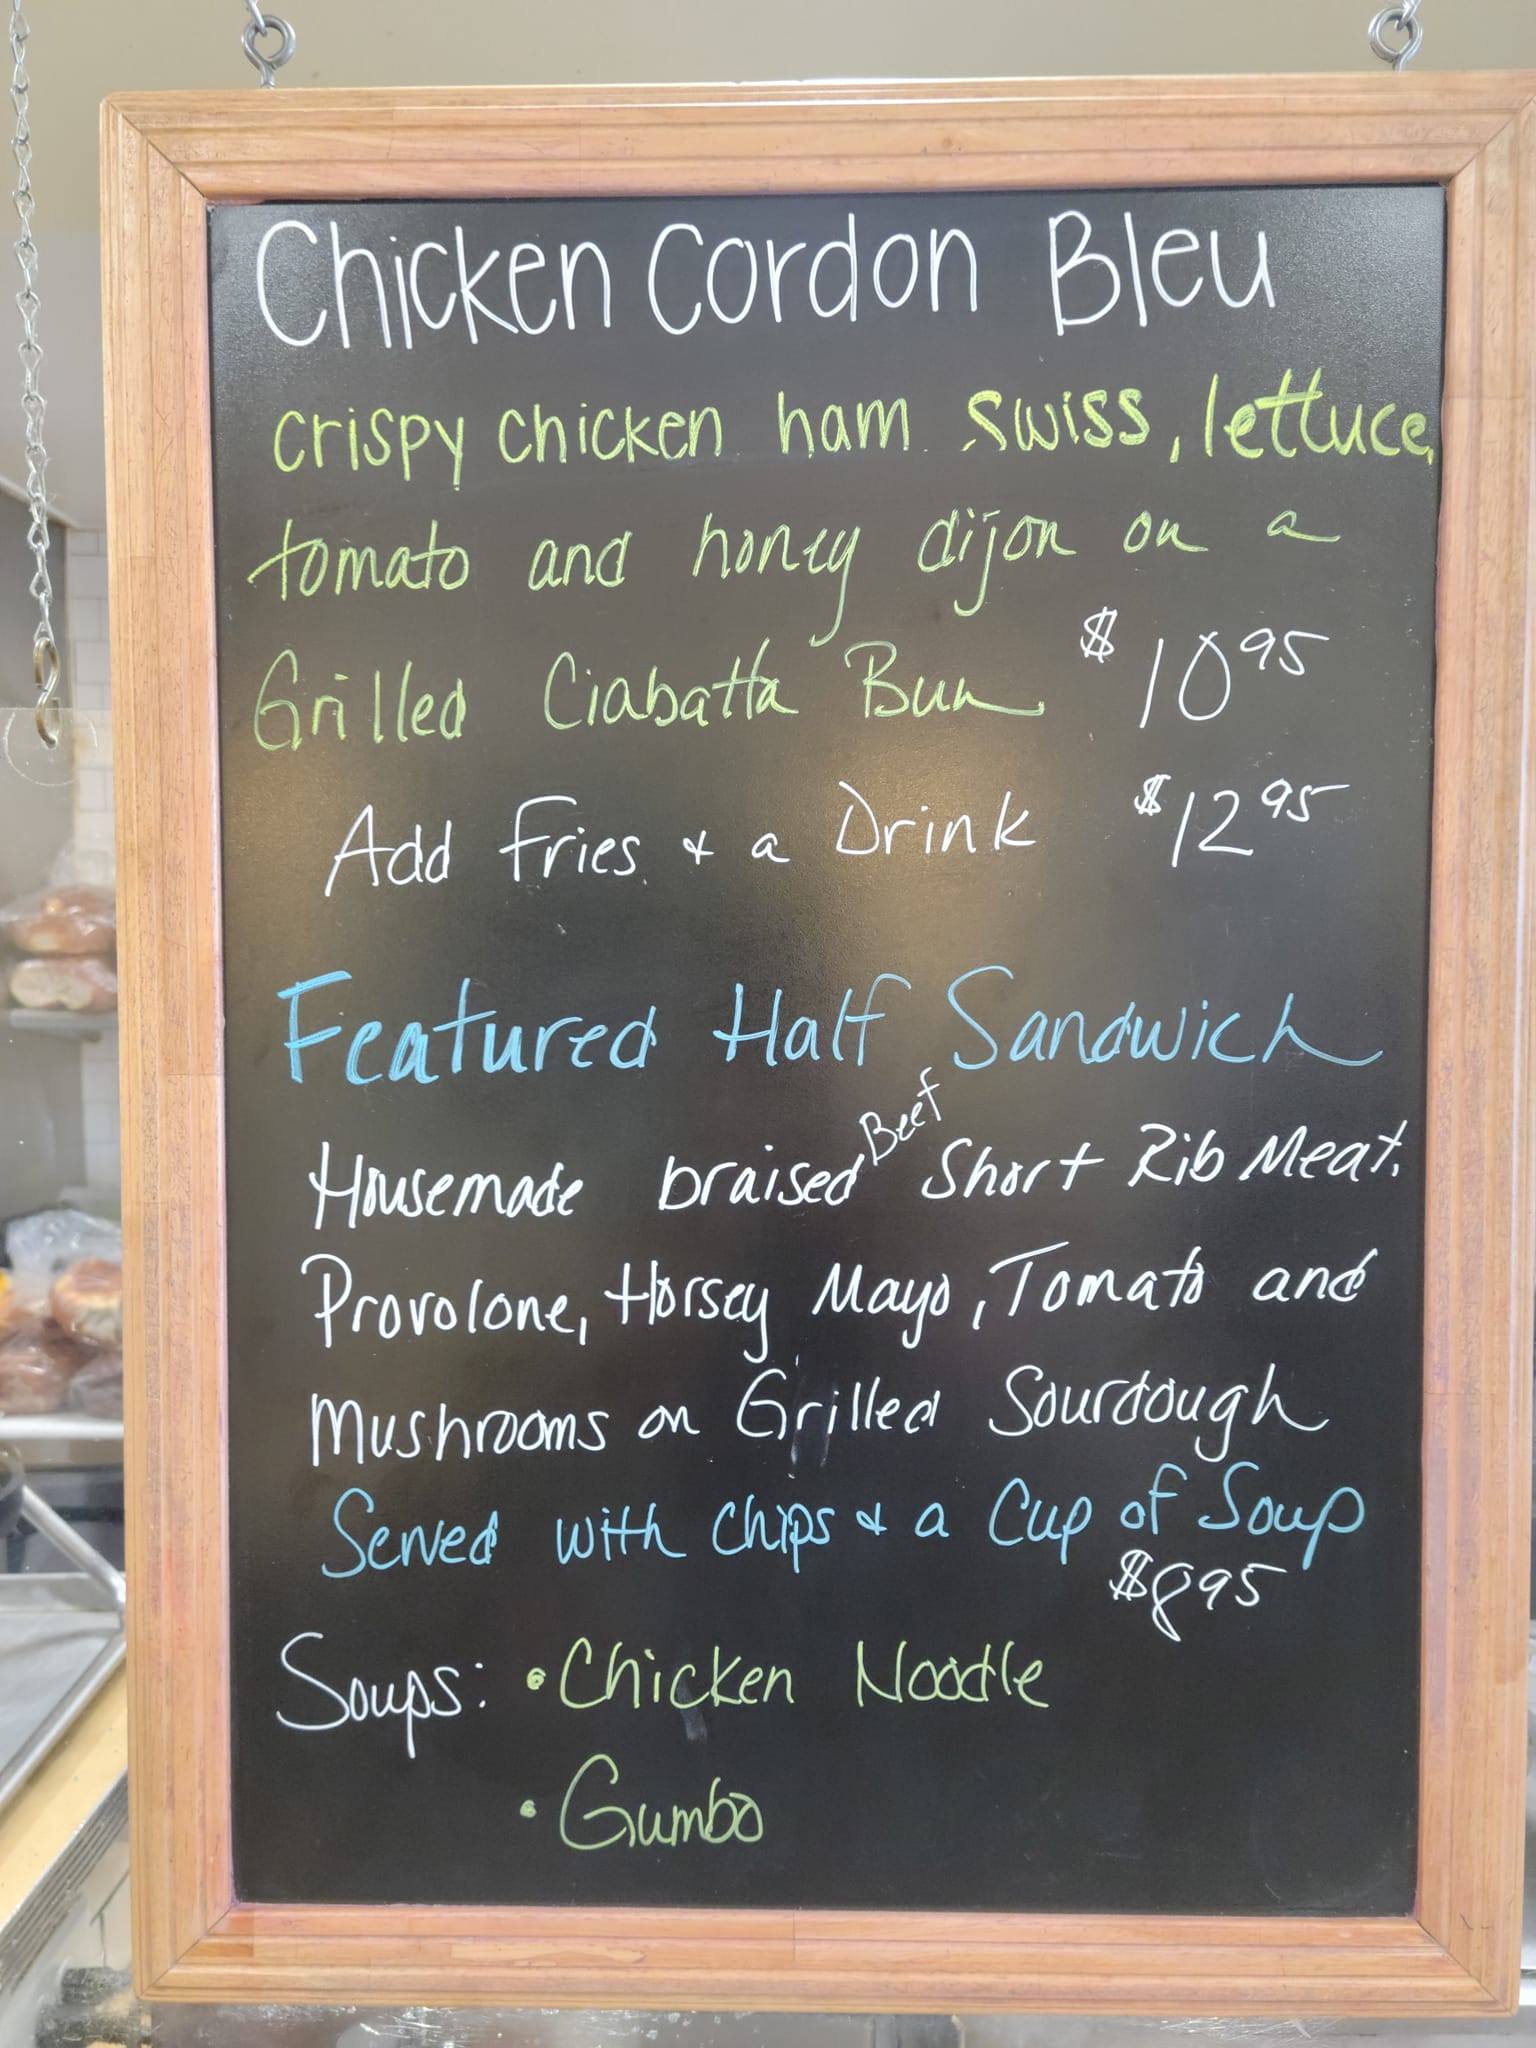 Chicken Cordon Bleu
crispy chicken ham swiss, lettuce,
tomato and honey dijon on a
Grilled Ciabatta Bun $10.95
Add Fries & a Drink $12.95
Featured Half Sandwich
Housemade braised Beef Short Rib Meat,
Provolone, Horsey Mayo, Tomato and
Mushrooms on Grilled Sourdough
Served with Chips & a Cup of Soup
$8.95
Soups: • Chicken Noodle
• Gumbo